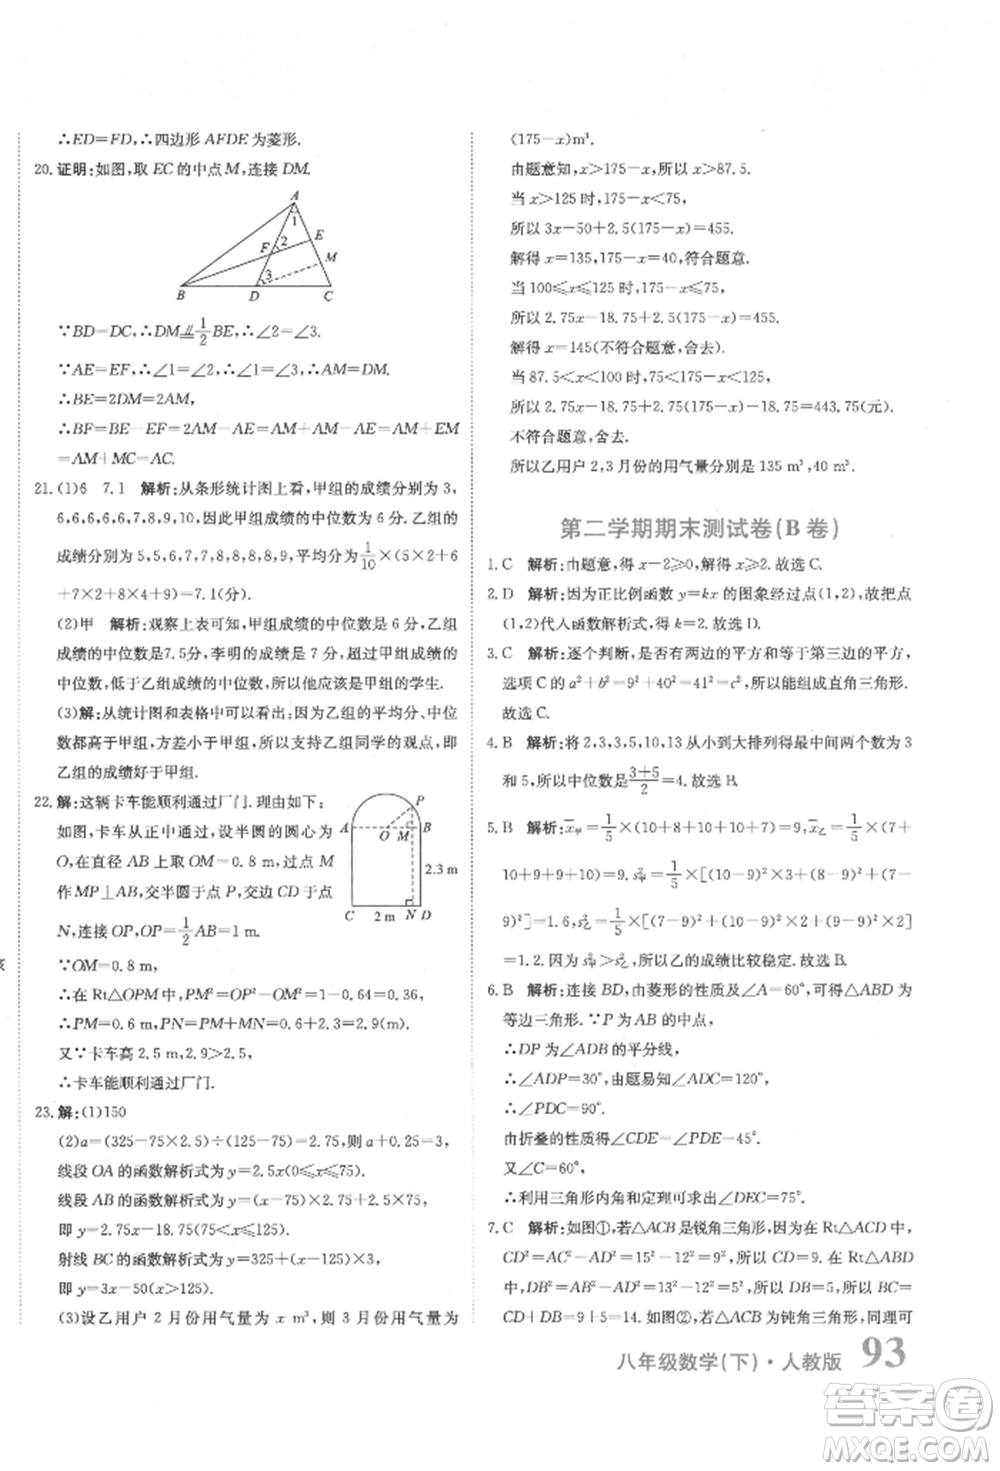 ∴ED=FD,∴四边形 AFDE 为菱形.
20. 证明:如图,取 EC 的中点 M,连接 DM.
A
1
F 2 E
M
3
B D C
∵BD=DC,∴DM⫽1/2 BE,∴∠2=∠3.
∵AE=EF,∴∠1=∠2,∴∠1=∠3,∴AM=DM.
∴BE=2DM=2AM,
∴BF=BE-EF=2AM-AE=AM+AM-AE=EM
+AM=MC+AM=AC.
21. (1)6 7.1 解析:从条形统计图上看,甲组的成绩分别为 3,
6,6,6,6,6,7,8,9,9,10,因此甲组成绩的中位数为 6 分.乙组的
成绩分别为 5,5,6,7,7,8,8,8,8,9,平均分为 1/10×(5×2+6
+7×2+8×4+9)=7.1(分).
(2)甲 解析:观察上表可知,甲组成绩的中位数是 6 分,乙组
成绩的中位数是7.5分,李明的成绩是 7 分,超过甲组成绩的
中位数,低于乙组成绩的中位数,所以他应该是甲组的学生.
(3)解:从统计图和表格中可以看出:因为乙组的平均分、中位
数都高于甲组,方差小于甲组,所以支持乙组同学的观点,即
乙组的成绩好于甲组.
22. 解:这辆卡车能顺利通过厂门.理由如下:
如图,卡车从正中通过,设半圆的圆心为
O,在直径 AB 上取 OM=0.8 m,过点 M
作 MP⊥AB,交半圆于点 P,交 CD 于点
N,连接 OP,OP=1/2 AB=1 m.
P
A O M B
2.3 m
C 2 m N D
∵OM=0.8 m,
∴在 Rt△OPM 中,PM²=OP²-OM²=1-0.64=0.36,
∴PM=0.6 m,PN=PM+MN=0.6+2.3=2.9(m).
又∵卡车高 2.5 m,2.9>2.5,
∴卡车能顺利通过厂门.
23. 解:(1)150
(2)a=(325-75×2.5)÷(125-75)=2.75,则 a+0.25=3,
线段 OA 的函数解析式为 y=2.5x(0≤x≤75),
线段 AB 的函数解析式为 y=(x-75)×2.75+2.5×75,
即 y=2.75x-18.75(75<x≤125).
射线 BC 的函数解析式为 y=325+(x-125)×3,
即 y=3x-50(x>125).
(3)设乙用户 2 月份用气量为 x m³,则 3 月份用气量为
(175-x)m³.
由题意知,x>175-x,所以 x>87.5.
当 x>125 时,175-x<75,
所以 3x-50+2.5(175-x)=455.
解得 x=135,175-x=40.符合题意.
当 100≤x≤125 时,175-x≤75,
所以 2.75x-18.75+2.5(175-x)=455.
解得 x=145(不符合题意,舍去).
当 87.5<x<100 时,175-x>75,
所以 2.75x-18.75+2.75(175-x)-18.75=443.75(元).
不符合题意,舍去.
所以乙用户 2,3 月份的用气量分别是 135 m³,40 m³.
第二学期期末测试卷(B 卷)
1. C 解析:由题意,得 x-2≥0,解得 x≥2.故选 C.
2. D 解析:因为正比例函数 y=kx 的图象经过点(1,2),故把点
(1,2)代人函数解析式,得 k=2.故选 D.
3. C 解析:逐个判断,是否有两边的平方和等于第三边的平方,
选项 C 的 a²+b²=9²+40²=41²=c²,所以能组成直角三角形.
故选 C.
4. B 解析:将 2,3,3,5,10,13 从小到大排列得最中间两个数为 3
和5,所以中位数是 3+5/2=4.故选 B.
5. B 解析:x̄甲=1/5×(10+8+10+10+7)=9,x̄乙=1/5×(7+
10+9+9+10)=9.s²甲=1/5×[(10-9)²+(8-9)²+…+(7-
9)²]=1.6,s²乙=1/5×[(7-9)²+(10-9)²+…+(10-9)²]
=1.2.因为 s²甲>s²乙,所以乙的成绩比较稳定.故选 B.
6. B 解析:连接 BD,由菱形的性质及∠A=60°,可得△ABD 为
等边三角形.∵P 为 AB 的中点,
∴DP 为∠ADB 的平分线,
∴∠ADP=30°.由题易知∠ADC=120°,
∴∠CDP=90°.
由折叠的性质得∠CDE=∠PDE=45°.
又∠C=60°,
∴利用三角形内角和定理可得∠DEC=75°.
7. C 解析:如图①,若△ACB是锐角三角形,因为在 Rt△ACD 中,
CD²=AC²-AD²=15²-12²=9²,所以 CD=9.在 Rt△ABD
中,DB²=AB²-AD²=13²-12²=5²,所以 DB=5,所以 BC=
CD+DB=9+5=14.如图②,若△ACB 为钝角三角形,同理可
八年级数学(下)·人教版 93
答案圈
MXQE.COM